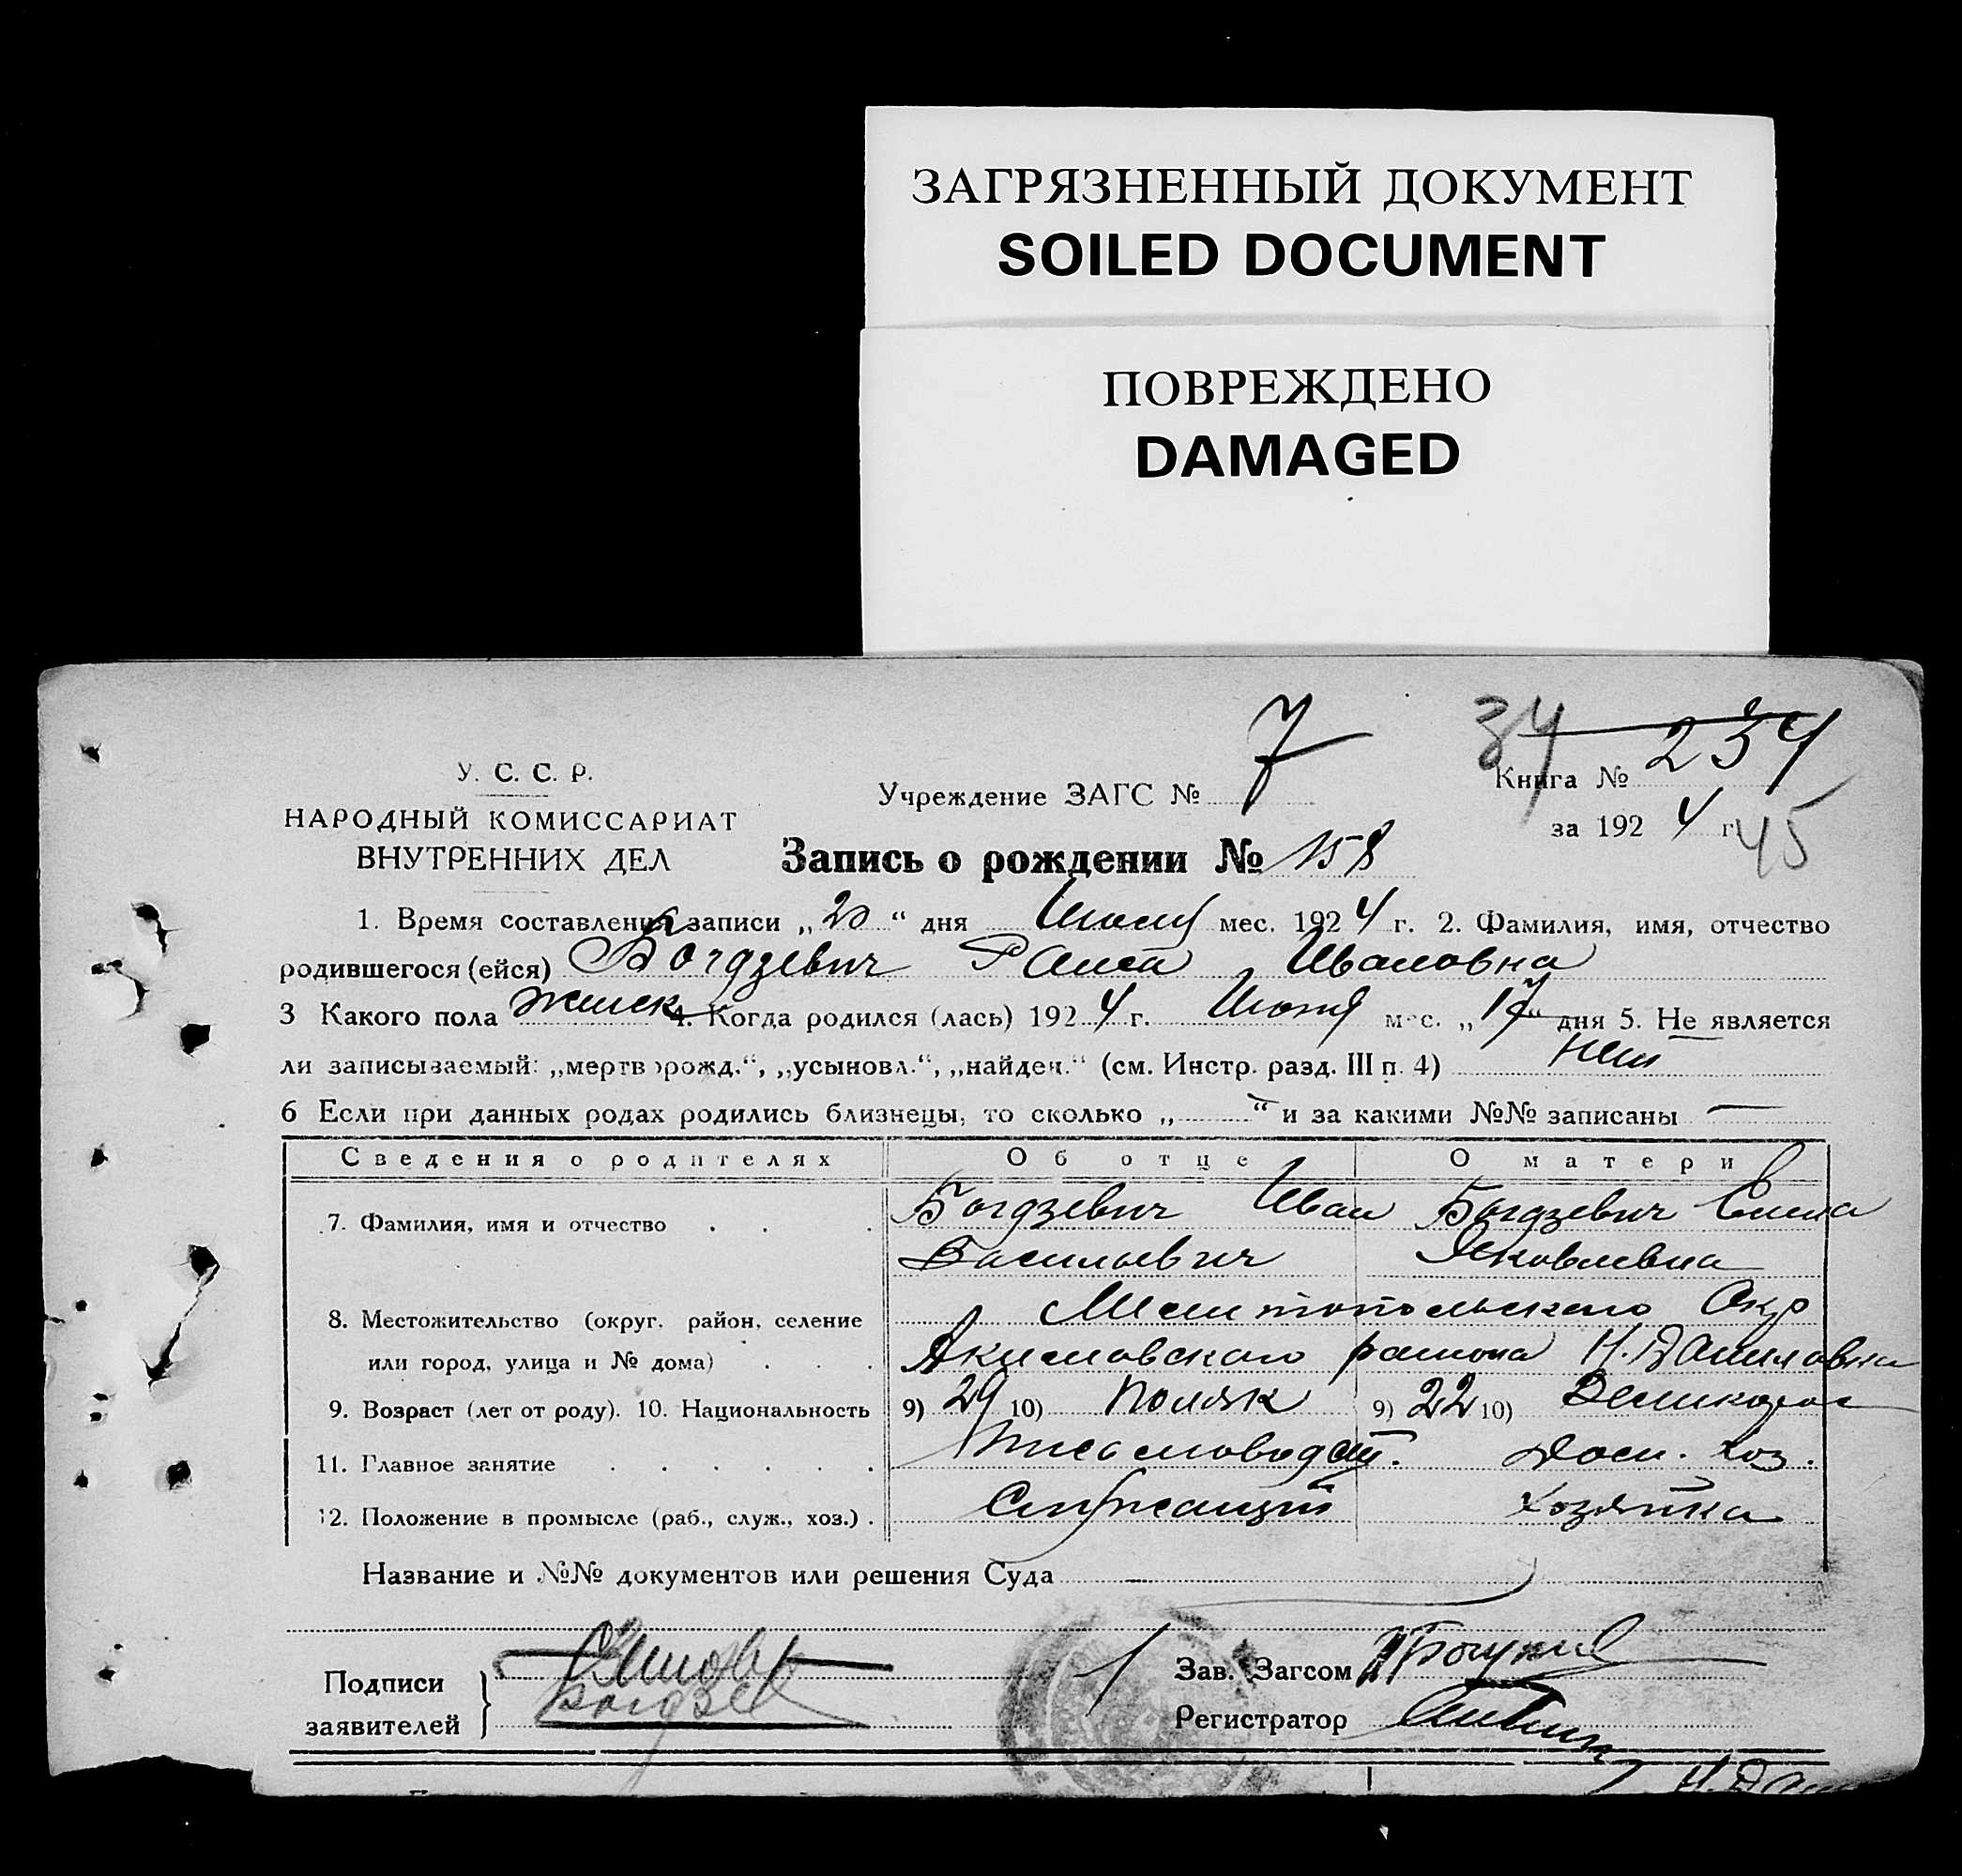 ЗАГРЯЗНЕННЫЙ ДОКУМЕНТ
SOILED DOCUMENT
ПОВРЕЖДЕНО
DAMAGED
34 234
У. С. С. Р.
НАРОДНЫЙ КОМИССАРИАТ
ВНУТРЕННИХ ДЕЛ
Учреждение ЗАГС № 7
Книга №
за 1924 г. 45
Запись о рождении № 158
1. Время составления записи „20“ дня мес. 1924 г. 2. Фамилия, имя, отчество
родившегося (ейся) Богдзевич Раиса Ивановна
3 Какого пола женск 4. Когда родился (лась) 1924 г. мес. „17“ дня 5. Не является
ли записываемый: „мертворожд.“, „усыновл.“, „найден.“ (см. Инстр. разд. III п. 4) нет
6 Если при данных родах родились близнецы, то сколько „ — “ и за какими №№ записаны —
Сведения о родителях Об отце О матери
7. Фамилия, имя и отчество . . . Богдзевич Иван Богдзевич Елена
Васильевич Яковлевна
8. Местожительство (округ, район, селение Мелитопольского Окр
или город, улица и № дома) . . . Акимовского района Н. Даниловка
9. Возраст (лет от роду). 10. Национальность 9) 29 10) Поляк 9) 22 10) Великорос
11. Главное занятие . . . . . Письмоводит. Дом. хоз.
12. Положение в промысле (раб., служ., хоз.) . Служащий хозяйка
Название и №№ документов или решения Суда —
Подписи
заявителей
Богдзев
Зав. Загсом
Регистратор